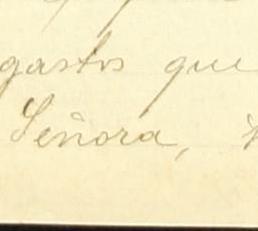 gastos que
Señora,